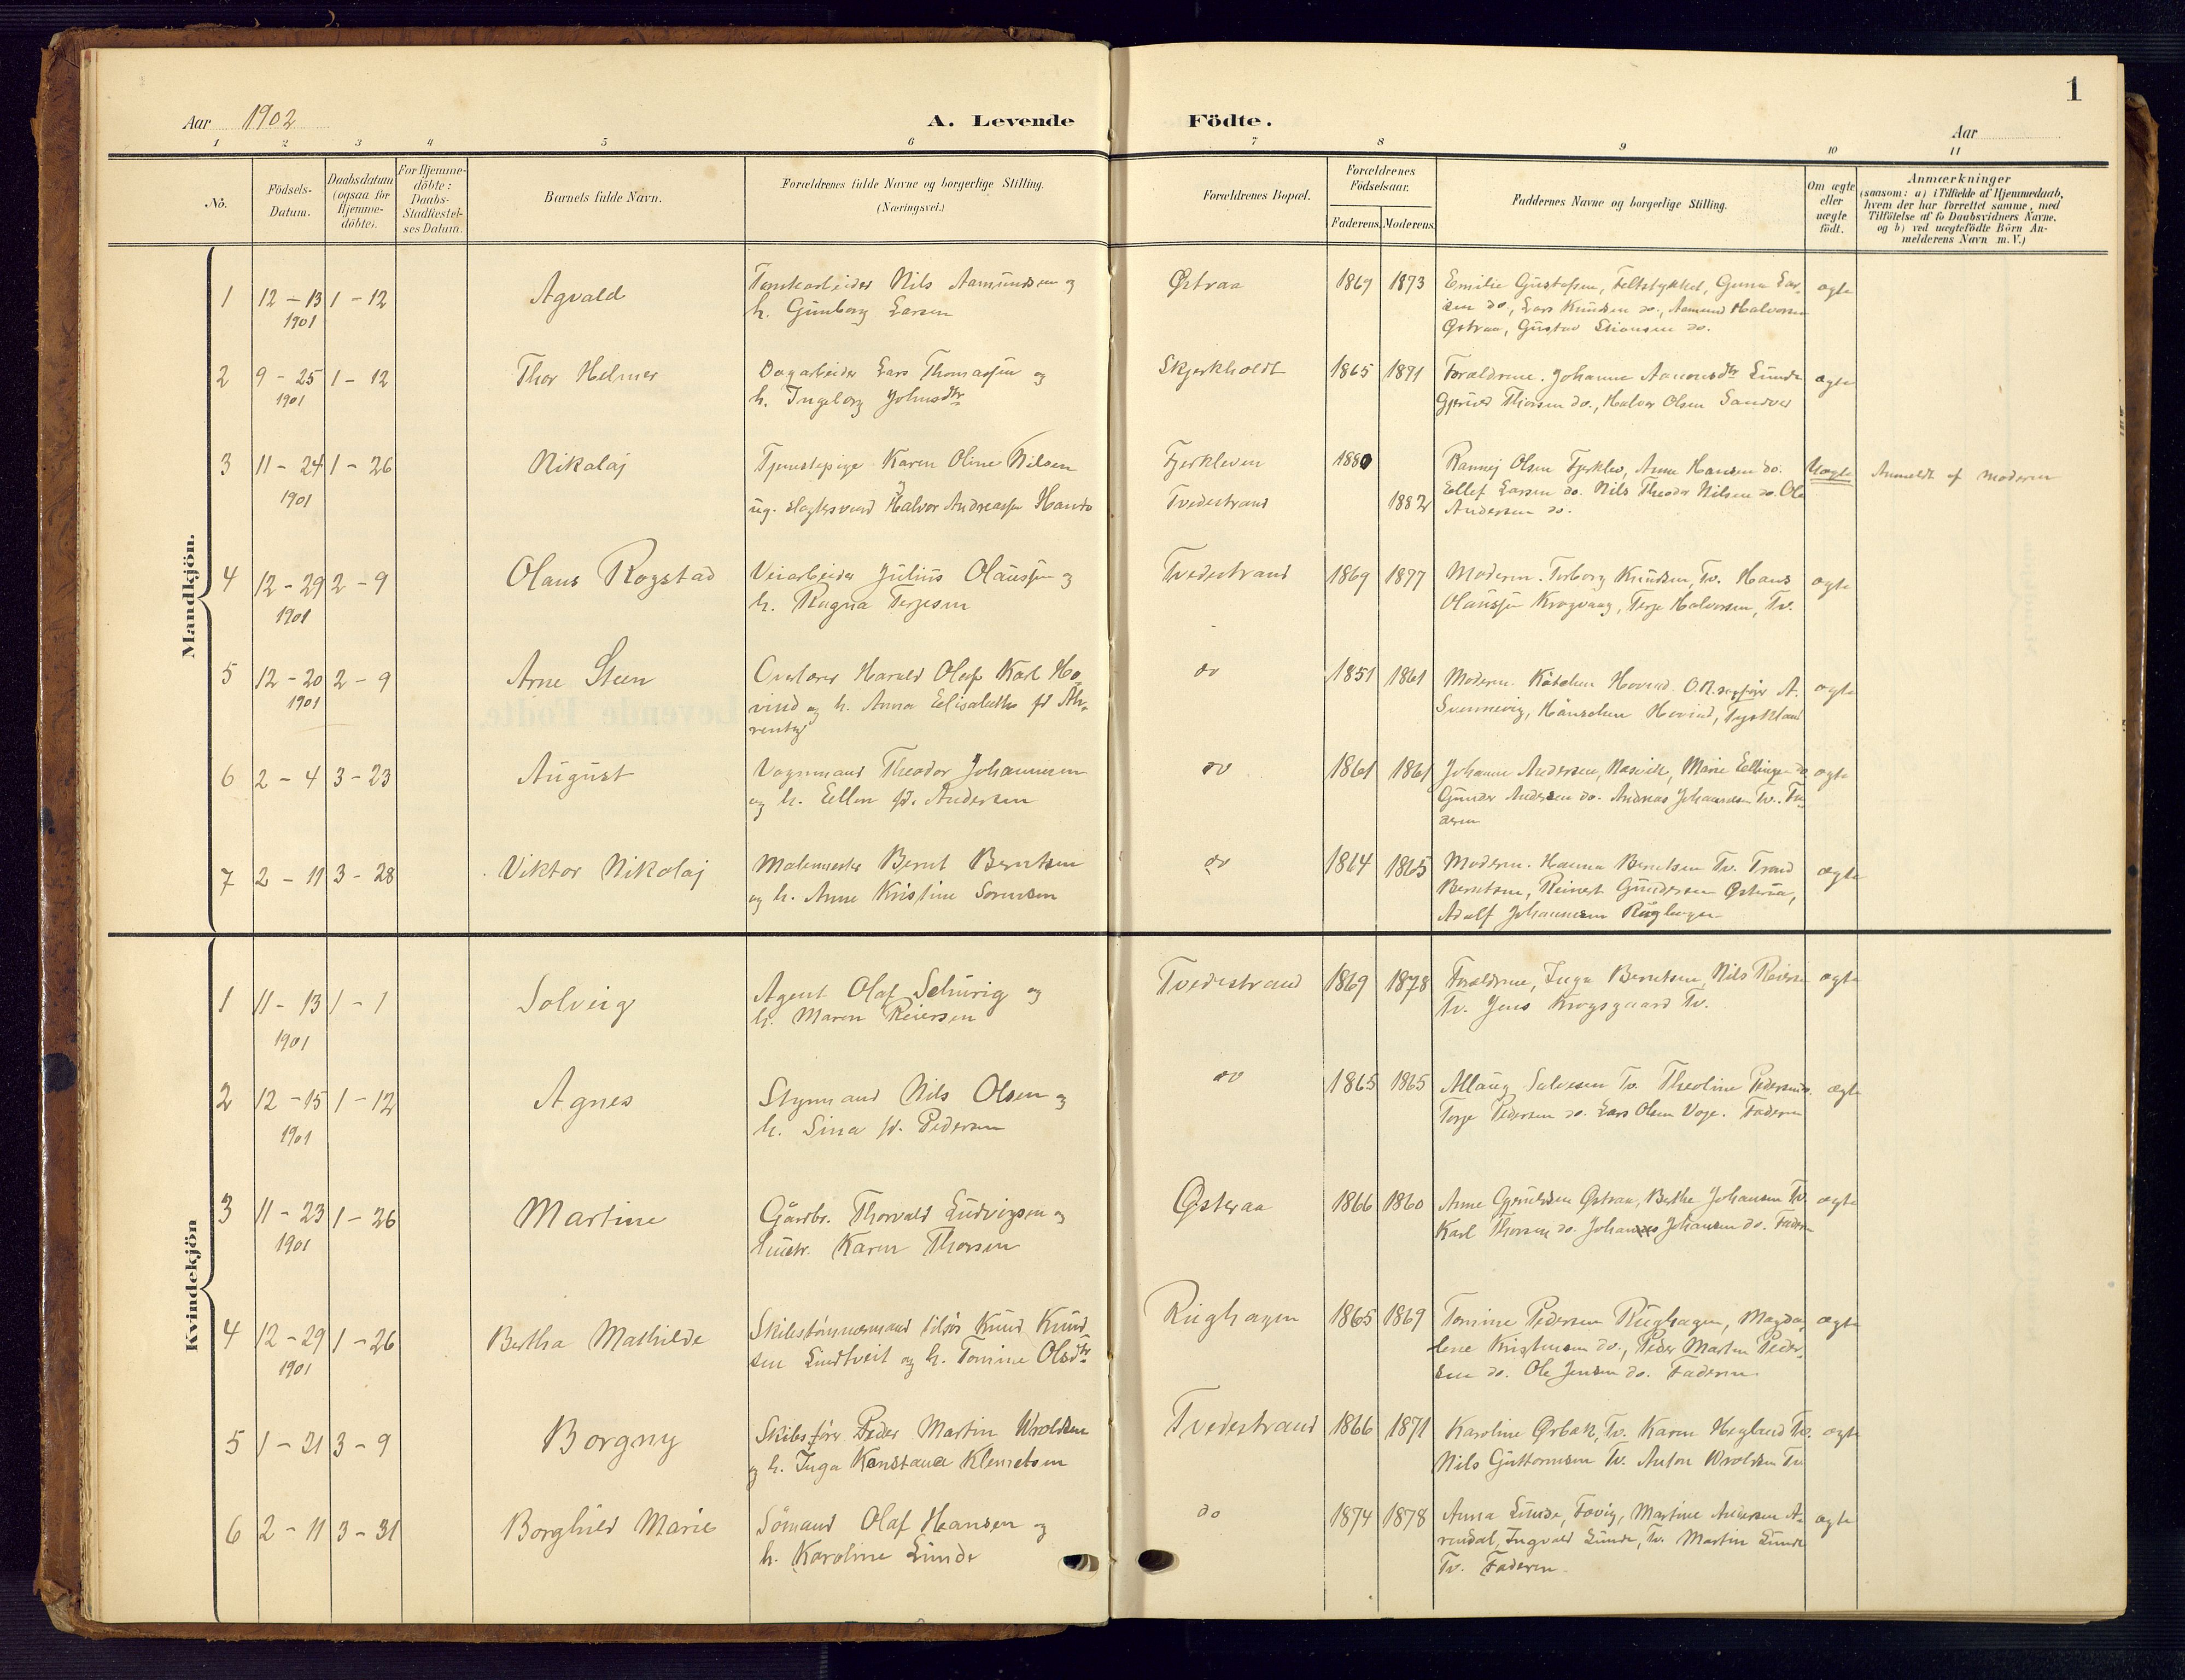 1
Aar 1902
A. Levende Födte.
Aar
1 2 3 4 5 6 7 8 9 10 11
No.
Födsels-Datum.
Daabsdatum (ogsaa for Hjemme-döbte).
For Hjemme-döbte: Daabs-Stadfæstel-ses Datum.
Barnets fulde Navn.
Forældrenes fulde Navne og borgerlige Stilling. (Næringsvei.)
Forældrenes Bopæl.
Forældrenes Födselsaar.
Faderens. Moderens.
Faddernes Navne og borgerlige Stilling.
Om ægte eller uægte födt.
Anmærkninger
(saasom: a) i Tilfælde af Hjemmedaab,
hvem der har forrettet samme, med
Tilföielse af to Daabsvidners Navne,
og b) ved uægtefödte Börn An-
melderens Navn m. V.)
Mandkjön.
1 12-13 1901 1-12 Agvald
Nils Aamundsen og
h. Gunborg Larsen
Østraa 1869 1873
Emilie Gustafsen, Feltstykket, Gunn Lar-
sen do, Lars Knudsen do., Aamund Halvorsen
Østraa, Gustav do.
ægte
2 9-25 1901 1-12 Thor Helmer
Dagarbeider Lars Thomassen og
h. Ingeborg Johnsdtr
Skjerkholdt 1865 1871
Forældrene. Johanne Aanonsdtr Lunde
Thorsen do., Halvor Olsen Sandver
ægte
3 11-24 1901 1-26 Nikolaj
Tjenestepige Karen Oline Nilsen
ug. Halvor Andreassen
Fjerkleven
Tvedestrand
1880 1882
Olsen Fjerklev, Anne Hansen do.
Ellef Larsen do. Nils Theodor Nilsen do. Ole
Andersen do.
Uægte
Anmeldt af moderen
4 12-29 1901 2-9 Olaus Rogstad
Veiarbeider Julius Olaussen og
h. Ragna Terjesen
Tvedestrand 1869 1877
Moderen. Torborg Knudsen, Tv. Hans
Olaussen Krogvaag, Terje Halvorsen, Tv.
ægte
5 12-20 1901 2-9 Arne Steen
Overlærer Harald Olaf Karl Ho-
vind og h. Anna Elisabeth fd Ah-
rentz
do 1851 1861
Moderen. Hovind. O.R.sagfører A.
Svennevig, Hovind, Tyskland
ægte
6 2-4 3-23 August
Vognmand Theodor Johannesen
og h. Ellen fd. Andersen
do 1861 1861
Johanne Andersen, Marie Ellingsen do
Gunder Andersen do. Andreas Johannesen Tv. Fa-
deren
ægte
7 2-11 3-28 Viktor Nikolaj
Malermester Bernt Berntsen
og h. Anne Kristine Sorensen
do 1864 1865
Moderen. Hanna Berntsen Tv. Trond
Berntsen, Reinert Gundersen Østeraa,
Adolf Johannesen Rughagen
ægte
Kvindekjön
1 11-13 1901 1-1 Solveig
Agent Olaf Schürig og
h. Maren Reiersen
Tvedestrand 1869 1878
Forældrene, Inga Berntsen, Nils Reiersen
Tv. Jens Krogsgaard Tv.
ægte
2 12-15 1901 1-12 Agnes
Styrmand Nils Olsen og
h. Sina fd. Pedersen
do 1865 1865
Allaug Salvesen Tv. Theoline Pedersen do.
Terje Pedersen do. Lars Olsen Voje. Faderen
ægte
3 11-23 1901 1-26 Martine
Gaardbr. Thorvald Ludvigsen og
hustr. Karen Thorsen
Østeraa 1866 1860
Anne Gjeruldsen Østraa, Berthe Johansen Tv.
Karl Thorsen do. Johannes Johansen do. Faderen
ægte
4 12-29 1901 1-26 Bertha Mathilde
Skibstömmermand Knud Knud-
sen Lindtveit og h. Tomine Olsdtr
Rughagen 1865 1869
Tomine Pedersen Rughagen, Magda-
lene Kristensen do., Peder Martin Peder-
sen do. Ole Jensen do. Faderen.
ægte
5 1-21 3-9 Borgny
Skibsfører Peder Martin Wroldsen
og h. Inga Konstance Klemetsen
Tvedestrand 1866 1871
Karoline Ørbæk, Tv. Karen Hegland Tv.
Nils Guttormsen Tv. Anton Wroldsen Tv
ægte
6 2-11 3-31 Borghild Marie
Sömand Olaf Hansen og
h. Karoline Lunde
do 1874 1878
Anna Lunde, Martine Andersen A-
rendal, Ingvald Lunde, Tv. Martin Lunde
Tv. Faderen.
ægte